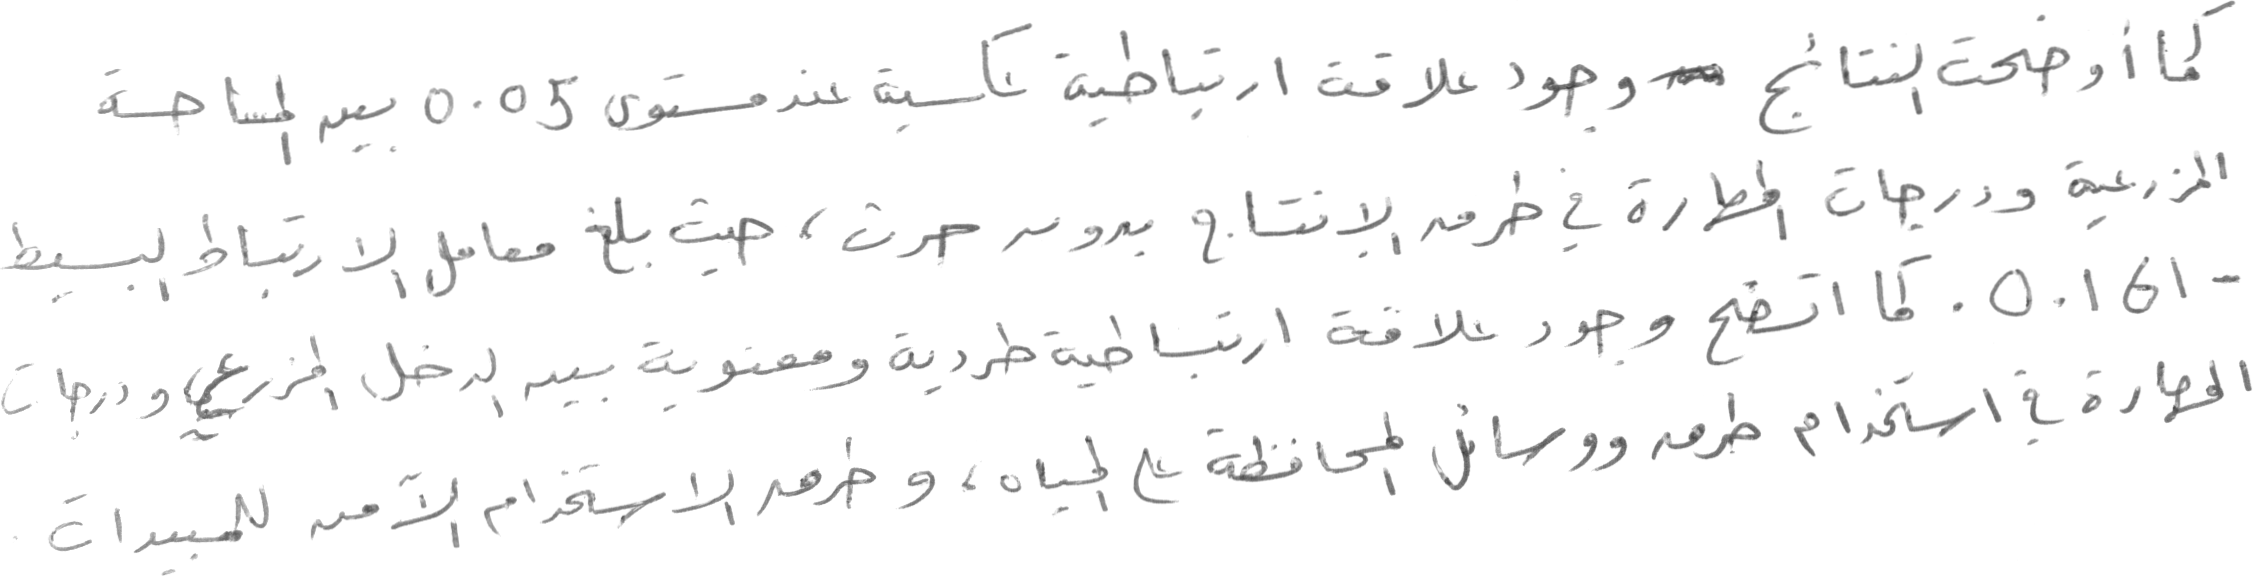 كما أوضحت النتائج وجود علاقة ارتباطية عكسية عند مستوى 0.05 بين المساحة
المزرعية ودرجات المهارة في طرق الإنتاج بدون حرث، حيث بلغ معامل الارتباط البسيط
- 0.161. كما اتضح وجود علاقة ارتباطية طردية ومعنوية بين الدخل المزرعي ودرجات
المهارة في استخدام طرق ووسائل المحافظة على المياه، وطرق الاستخدام الآمن للمبيدات.